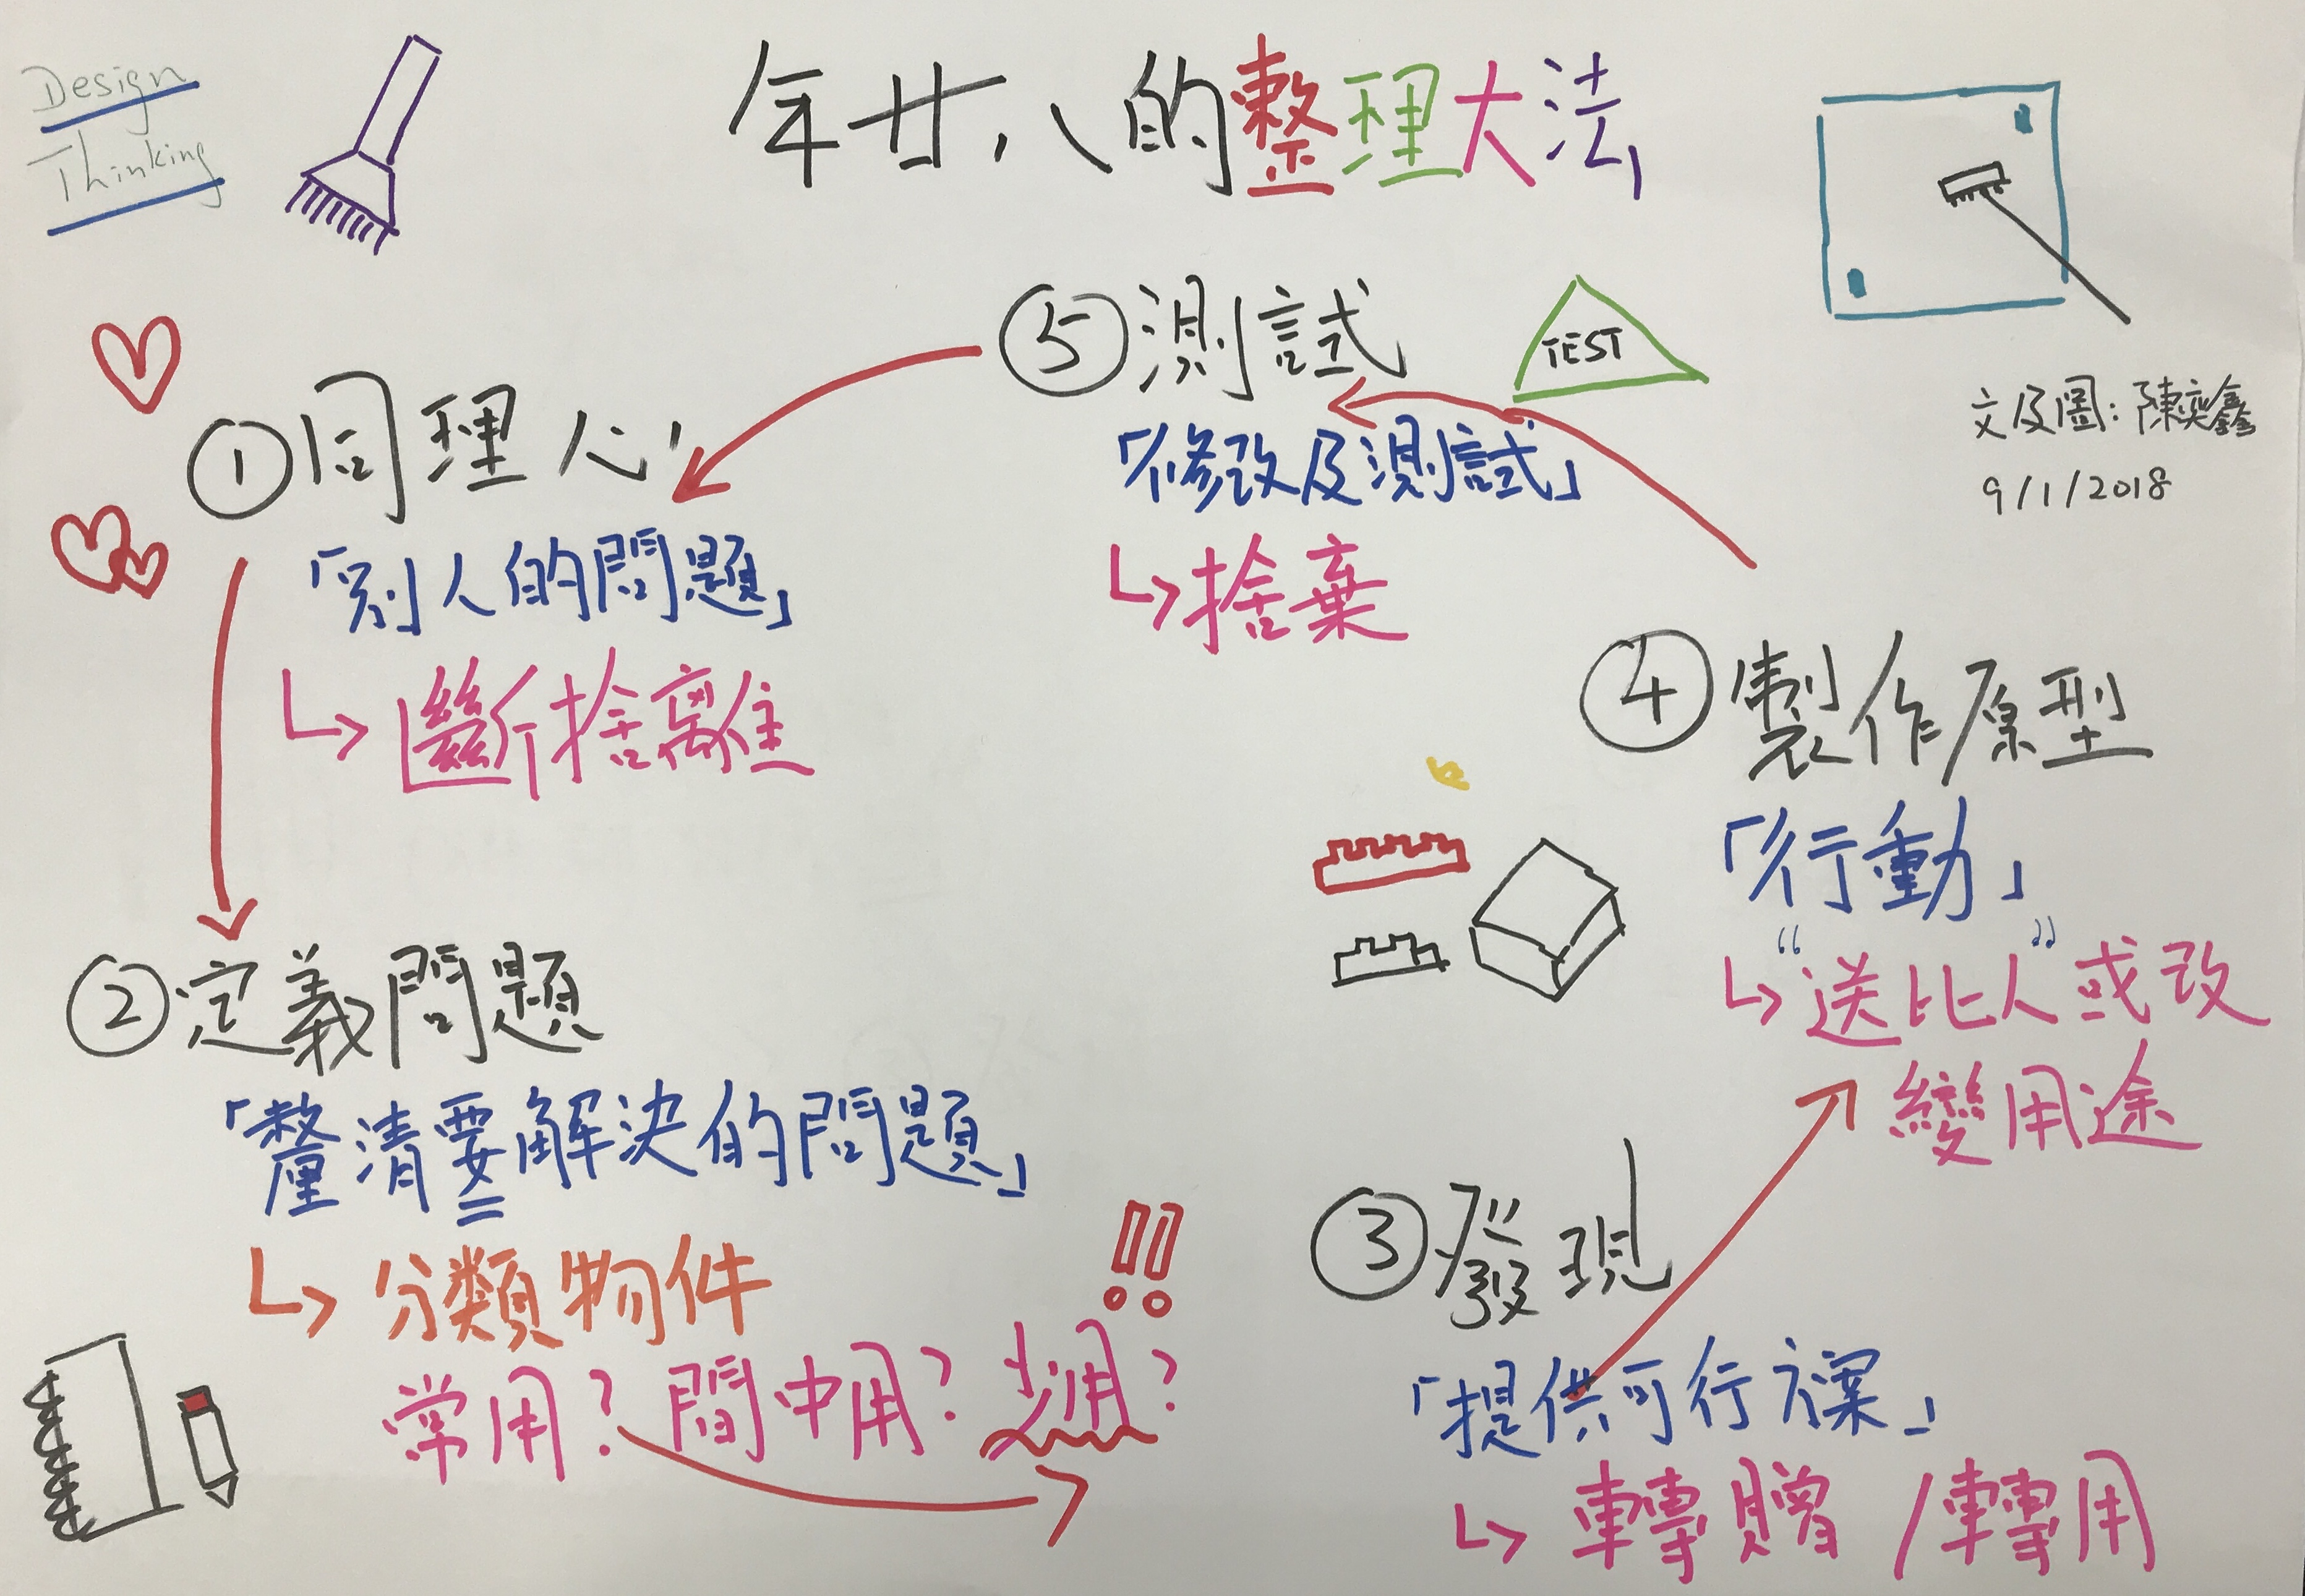 Design
Thinking
年廿八的整理大法
文及圖：陳奕鑫
9/1/2018
①同理心
「別人的問題」
↳斷捨離
②定義問題
「釐清要解決的問題」
↳分類物件
常用？間中用？少用？!!
③發現
「提供可行方案」
↳轉贈/轉用
④製作原型
「行動」
↳“送比人”或改
變用途
⑤測試
TEST
「修改及測試」
↳捨棄